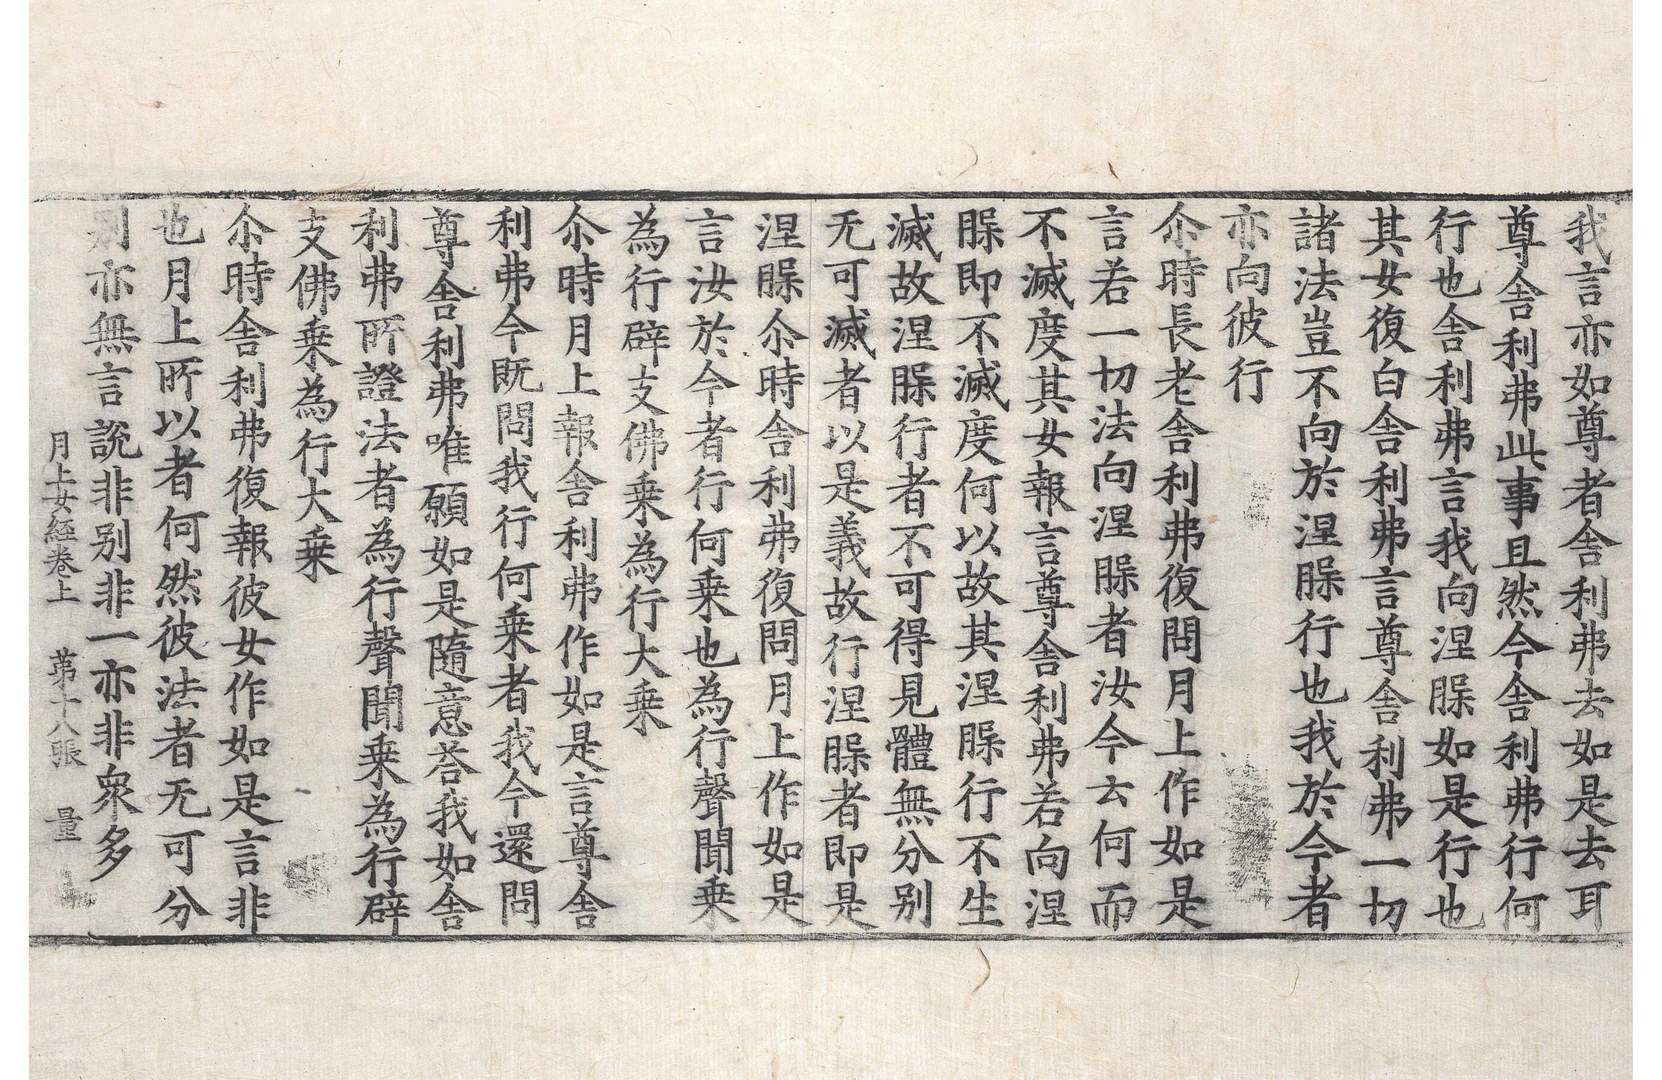 我言亦如尊者舍利弗去如是去耳
尊舍利弗此事且然今舍利弗行何
行也舍利弗言我向涅𦝫如是行也
其女復白舍利弗言尊舍利弗一切
諸法豈不向於涅𦝫行也我於今者
亦向彼行
尒時長老舍利弗復問月上作如是
言若一切法向涅𦝫者汝今云何而
不滅度其女報言尊舍利弗若向涅
𦝫即不滅度何以故其涅𦝫行不生
滅故涅𦝫行者不可得見體無分别
无可滅者以是義故行涅𦝫者即是
涅𦝫尒時舍利弗復問月上作如是
言汝於今者行何乗也為行聲聞乗
為行辟支佛乗為行大乗
尒時月上報舍利弗作如是言尊舍
利弗今既問我行何乗者我今還問
尊舍利弗唯願如是隨意荅我如舍
利弗所證法者為行聲聞乗為行辟
支佛乗為行大乗
尒時舍利弗復報彼女作如是言非
也月上所以者何然彼法者无可分
别亦無言說非别非一亦非衆多
月上女經卷上 苐十八張 量